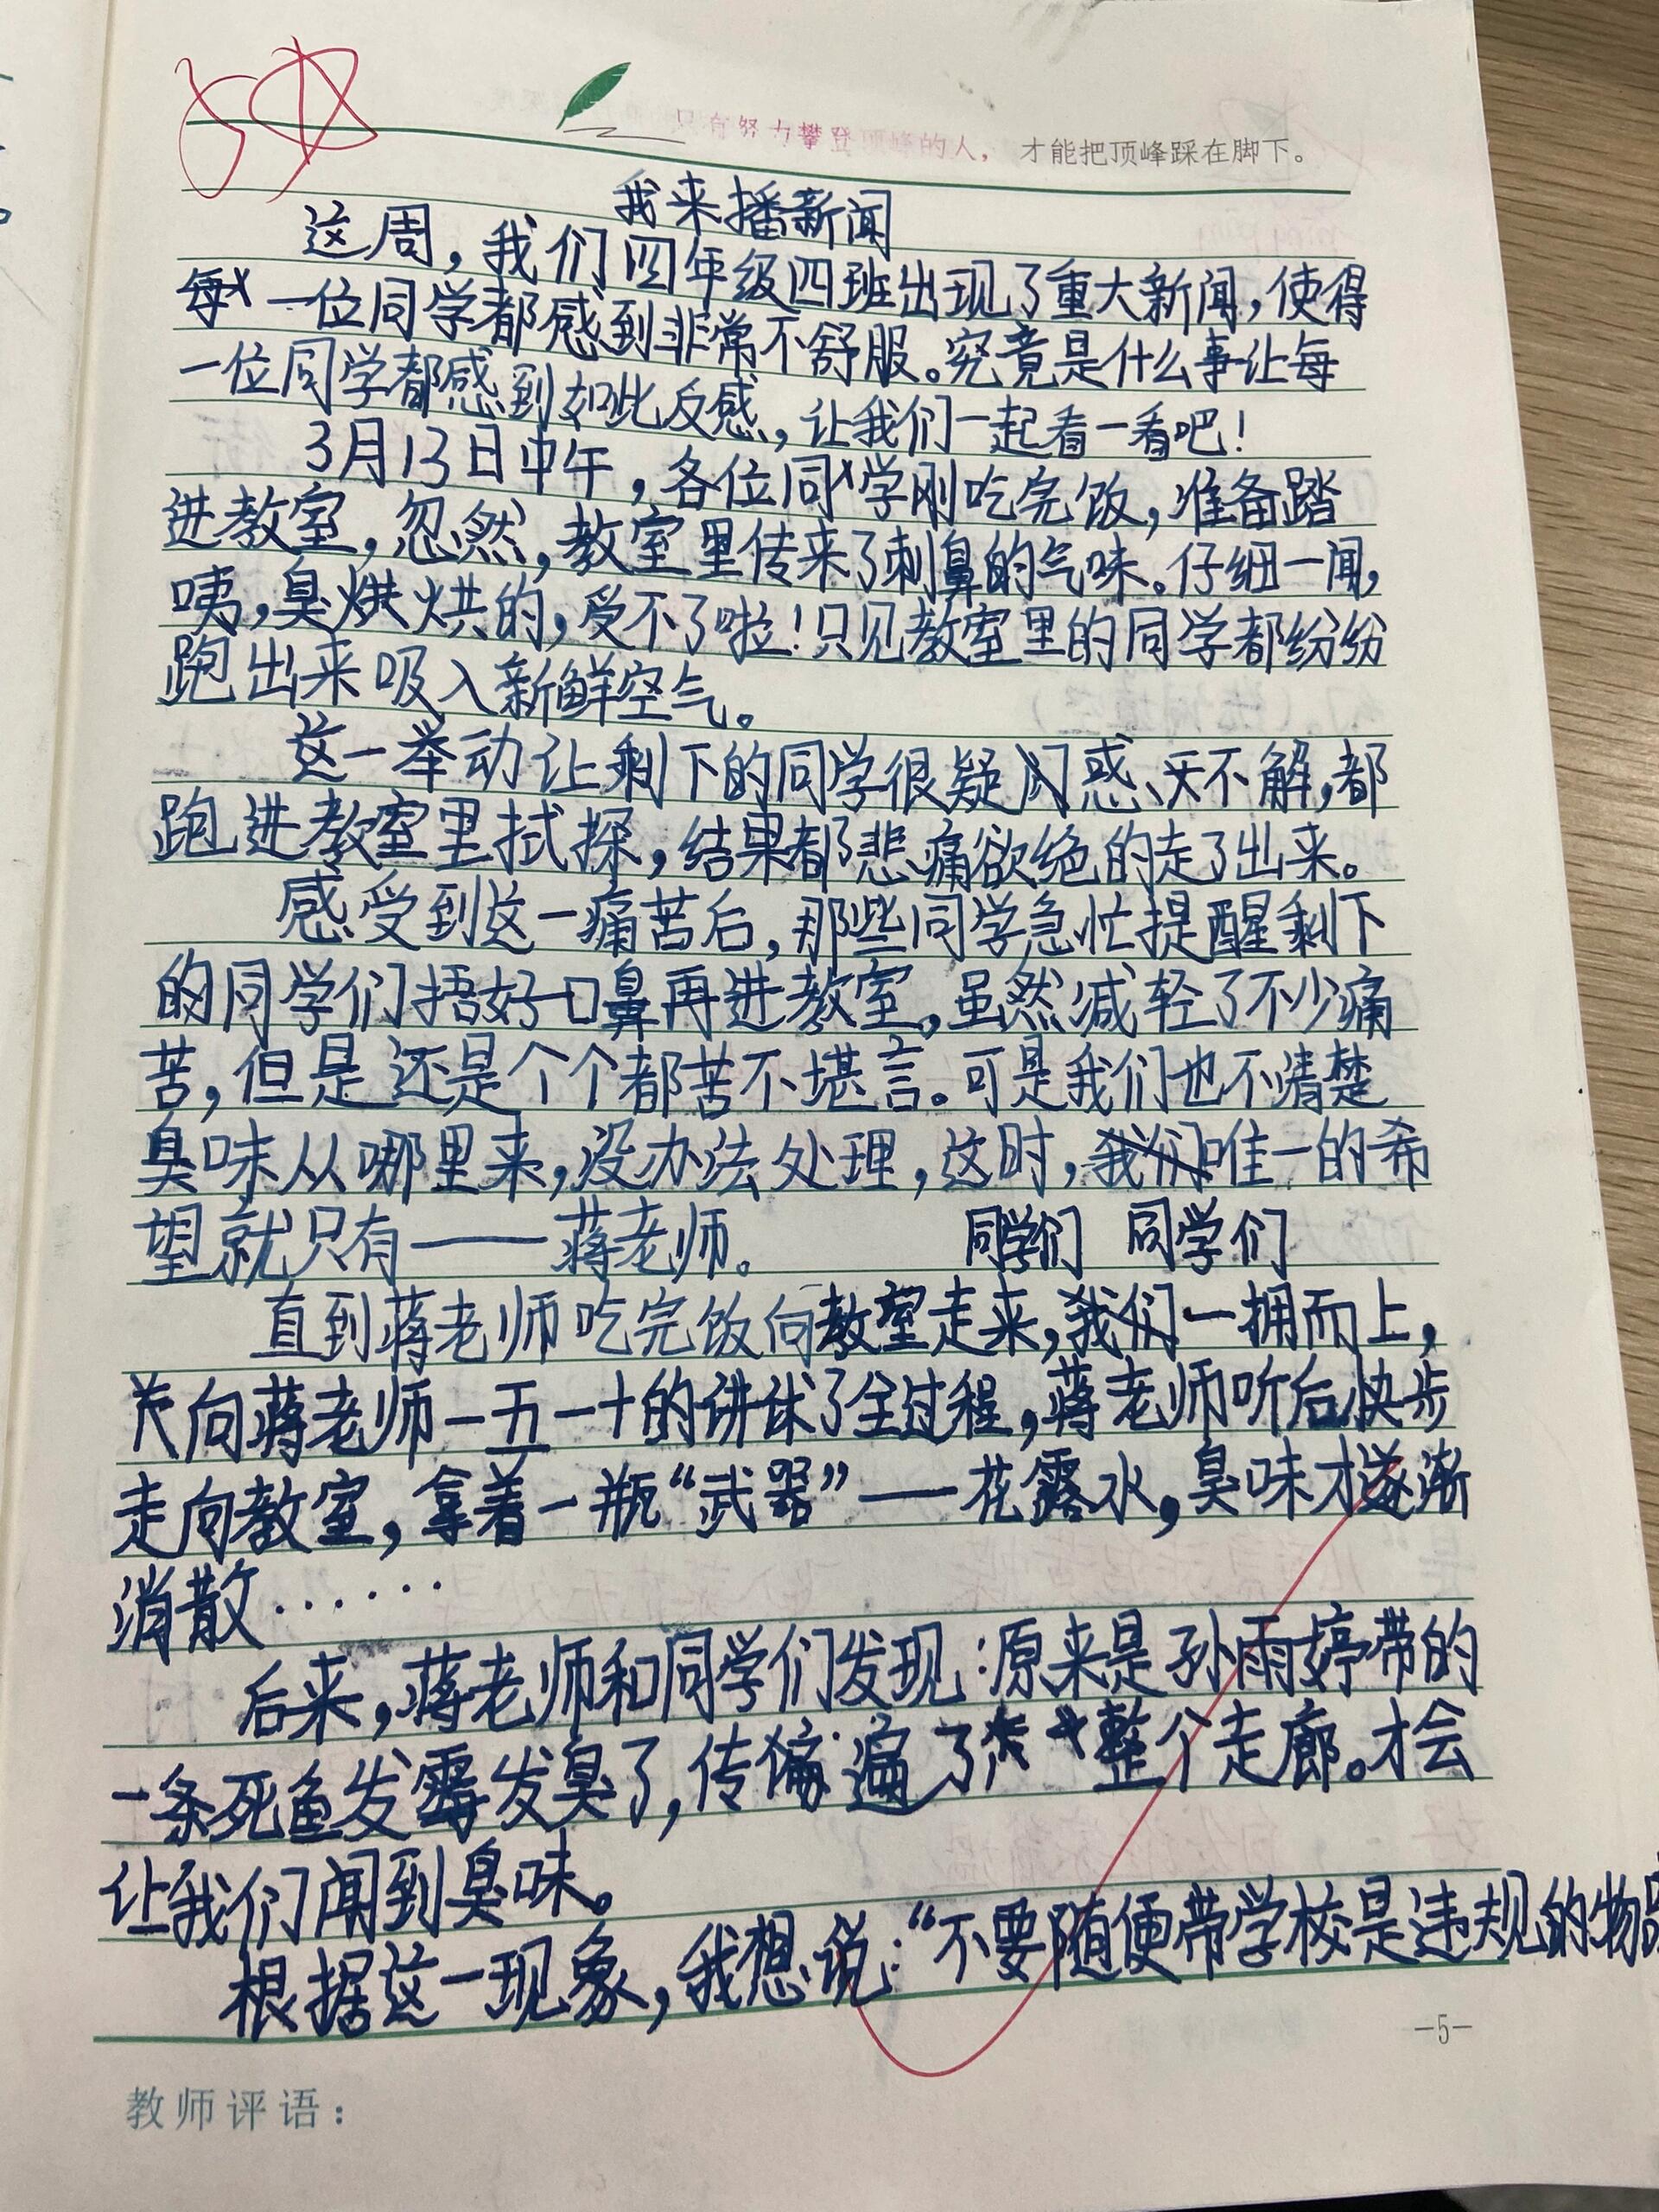 只有努力攀登顶峰的人，才能把顶峰踩在脚下。
我来播新闻
这周，我们四年级四班出现了重大新闻，使得
每一位同学都感到非常不舒服。究竟是什么事让每
一位同学都感到如此反感，让我们一起看一看吧！
3月13日中午，各位同学刚吃完饭，准备踏
进教室，忽然，教室里传来了刺鼻的气味。仔细一闻，
咦，臭烘烘的，受不了啦！只见教室里的同学都纷纷
跑出来吸入新鲜空气。
这一举动让剩下的同学很疑惑、不解，都
跑进教室里拭探，结果都悲痛欲绝的走了出来。
感受到这一痛苦后，那些同学急忙提醒剩下
的同学们捂好口鼻再进教室，虽然减轻了不少痛
苦，但是还是个个都苦不堪言。可是我们也不清楚
臭味从哪里来，没办法处理，这时，唯一的希
望就只有——蒋老师。
同学们 同学们
直到蒋老师吃完饭向教室走来，一拥而上，
向蒋老师一五一十的讲述了全过程，蒋老师听后快步
走向教室，拿着一瓶“武器”——花露水，臭味才逐渐
消散……
后来，蒋老师和同学们发现：原来是孙雨婷带的
一条死鱼发霉发臭了，传遍了整个走廊。才会
让我们闻到臭味。
根据这一现象，我想说：“不要随便带学校是违规的物品
—5—
教师评语：